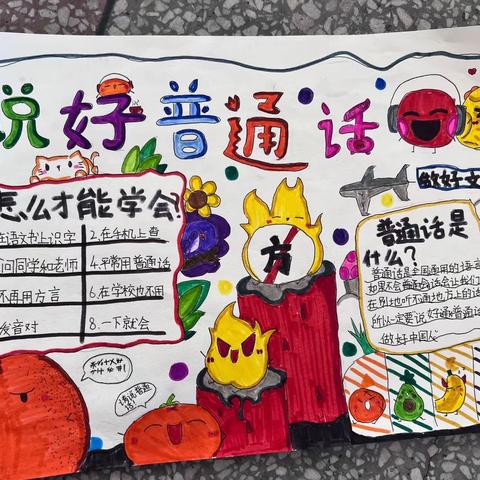 说好普通话
怎么才能学会?
在语文书上识字
2.在手机上查
问同学和老师
4.平常用普通话
不再用方言
6.在学校也不用
发音对
8.一下就会
方
做好文
普通话是
什么?
普通话是全国通用的语言
如果不会普通话会让我们
在别地听不通地方上的话
所以一定要说好通普通话
做好中国人
请说普通
话!